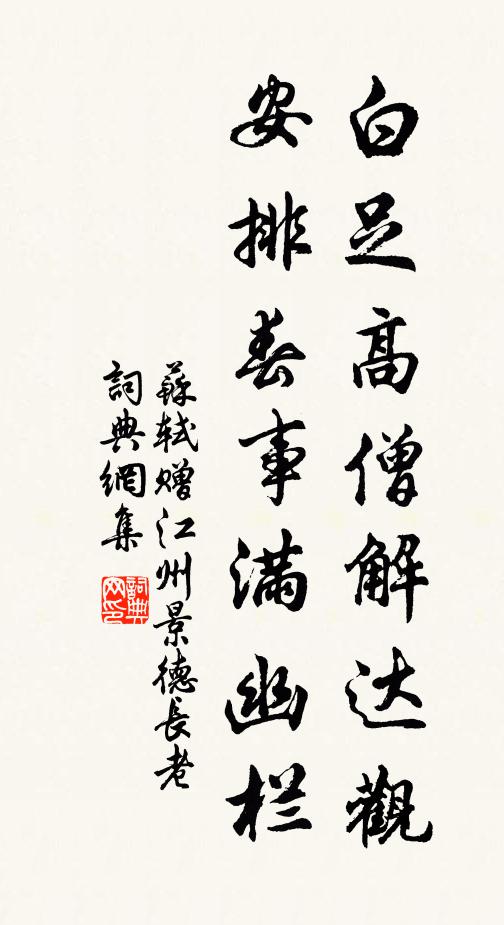 白足高僧解达觀
安排春事滿幽栏
蘇轼赠江州景德長老
詞典網集
詞典网印